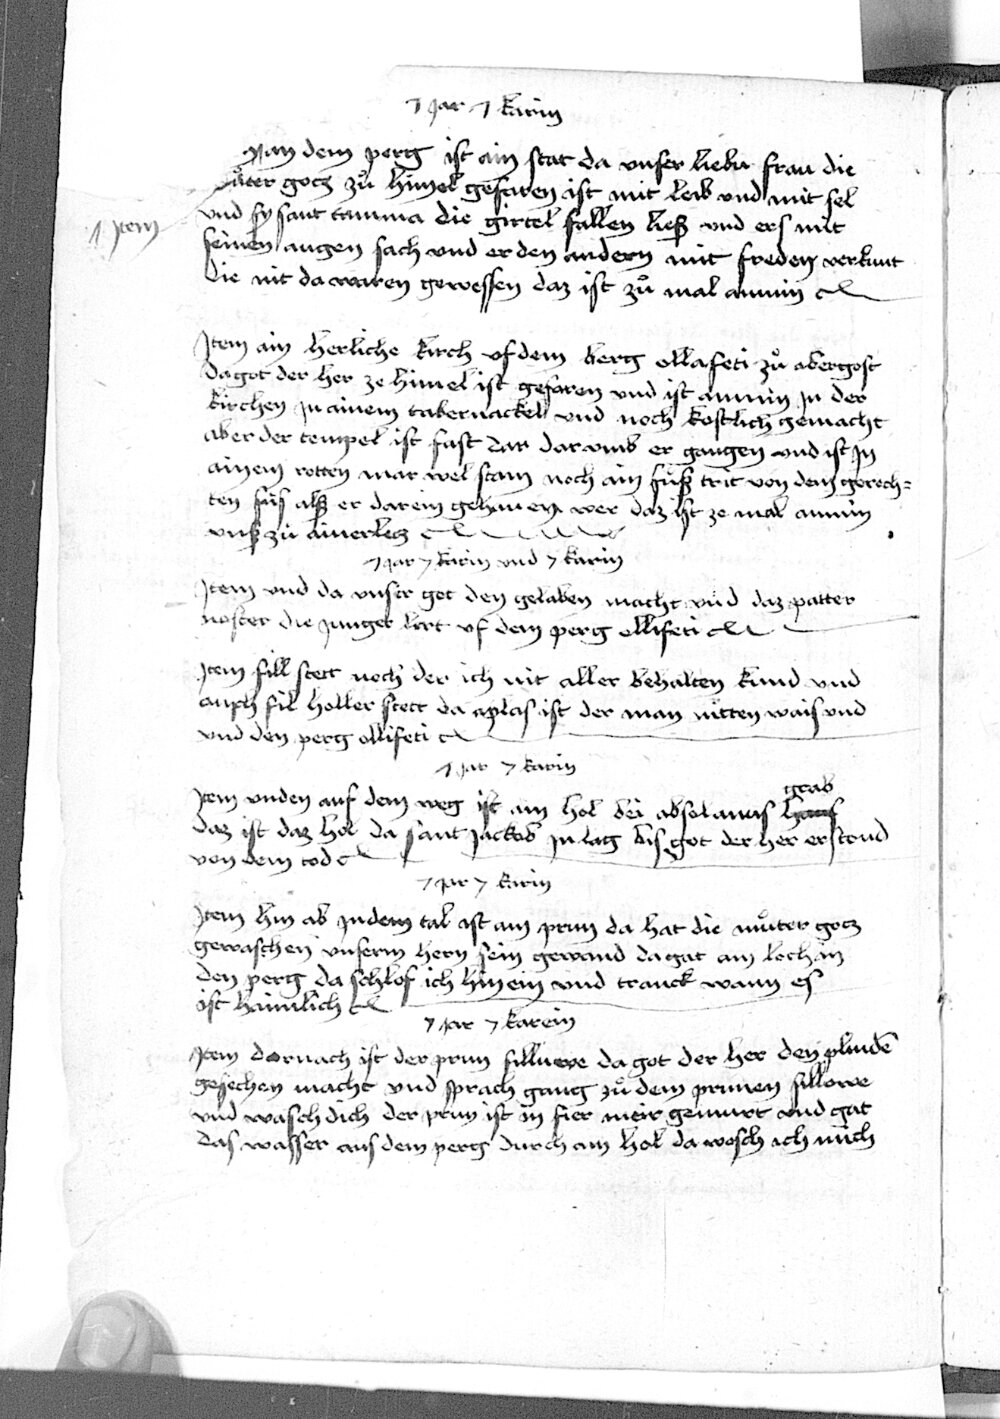 7 Jar 7 karin
An dem perg ist ain stat da unser lieben frau die
můter gocz zů himel gefaren ist mit leib und mit sel
1 Jtem
und sy sant tamma die girtel fallen liess und ers mit
seinen augen sach und er den andern mit freden verkunt
die nit da waren gewessen daz ist zů mal
Jtem ain herliche kirch uf dem berg ollafeti zů obergost
da got der her ze himel ist gefaren und ist in der
kirchen in ainem tabernackel und noch kostlich gemacht
aber der tempel ist fast dar umb er gangen und ist in
ainem rotten marwel stain noch ain fuss trit von dem gerech=
ten fus alss er darein gehauen wer daz ist ze mal
unss zů ainer lecz
7 Jar 7 karin und 7 karin
Jtem und da unser got den gelaben macht und daz patter
noster die junger lert uf dem perg ollifeti
Jtem fill stett noch der ich nit aller behalten kund und
auch fil holler stett da aplas ist der man nitten wais und
und den perg ollifeti
7 Jar 7 karin
grab
Jtem unden auf dem weg ist ain hol bei absolamis haus
daz ist daz hol da sant Jackob in lag bis got der her erstond
von dem tod
7 Jar 7 karin
Jtem hin ab in dem tal ist ain prun da hat die můter gocz
gewaschen unserm hern sein gewand da gat ain loch in
den perg da schlof ich hinein und tranck wann es
ist haimlich
7 Jar 7 karein
Jtem darnach ist der prun silluewe da got der her den plinden
gesechen macht und sprach gang zů dem prunen sillowe
und wasch dich der prun ist in fier meir gemurt und gat
das wasser aus dem perg durch ain hol da wosch ich mich